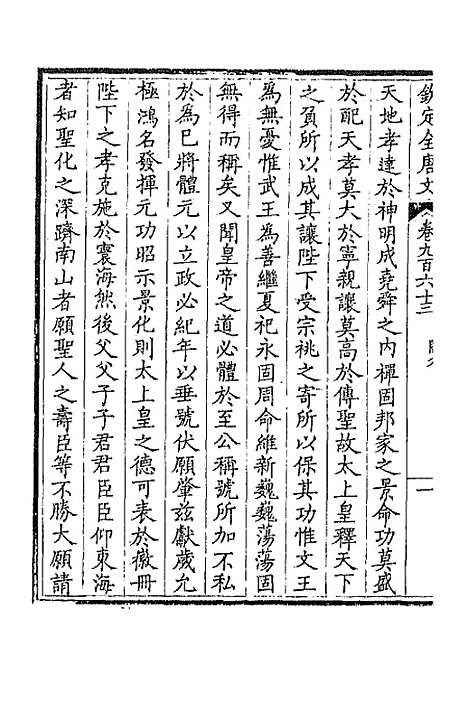 欽定全唐文 卷九百六十三
一
天地孝達於神明成堯舜之內禪固邦家之景命功莫盛
於配天孝莫大於寧親讓莫高於傳聖故太上皇釋天下
之負所以成其讓陛下受宗祧之寄所以保其功惟文王
為無憂惟武王為善繼夏祀永固周命維新巍巍蕩蕩固
無得而稱矣又聞皇帝之道必體於至公稱號所加不私
於為已將體元以立政必紀年以垂號伏願肇茲獻歲允
極鴻名發揮元功昭示景化則太上皇之德可表於徽冊
陛下之孝克施於寰海然後父父子子君君臣臣仰東海
者知聖化之深躋南山者願聖人之壽臣等不勝大願請